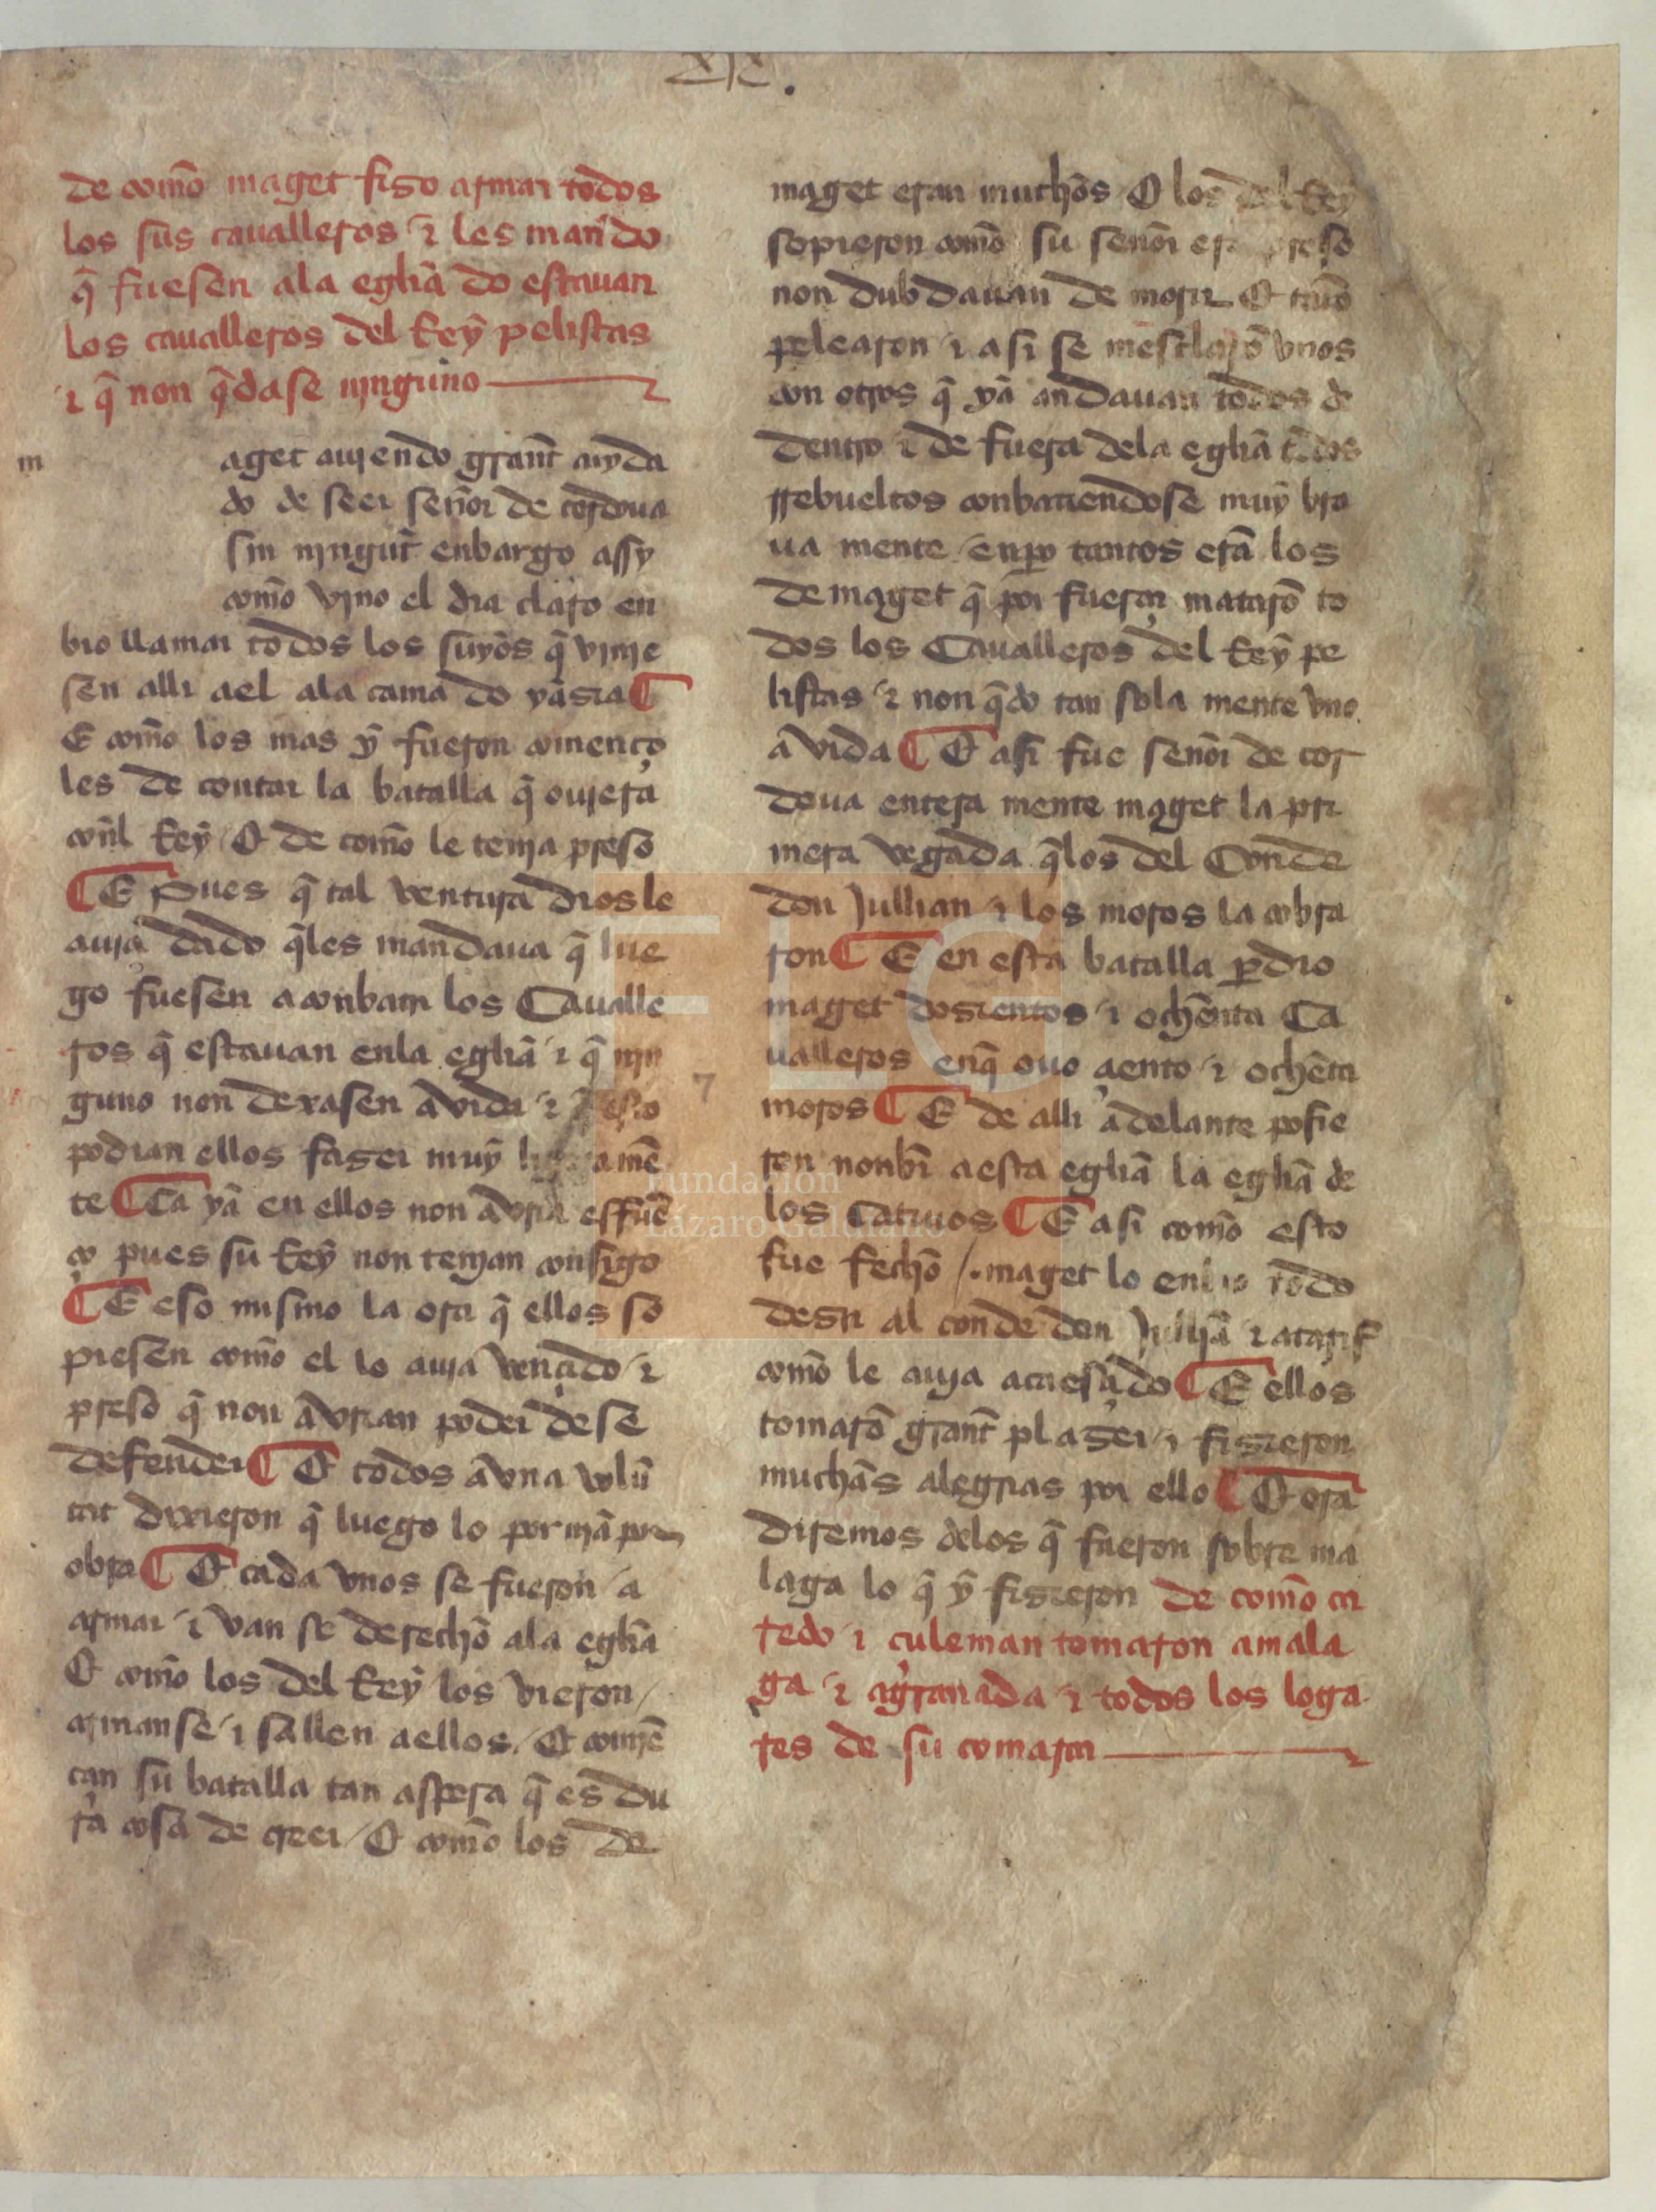 de com̃o maget fiso armar todos
los sus caualleros ⁊ les mando
q̃ fuesen ala egl̃ia do estauan
los caualleros del Rey pelistas
⁊ q̃ non q̃dase njnguno
m
aget aujendo grant̃ cuyda
do de seer señor de cordoua
sin njngut̃ enbargo assy
com̃o vjno el dia claro en
bio llamar todos los suyos q̃ vinje
sen alli ael ala cama do yasia ¶
E com̃o los mas y fueron começo
les de contar la batalla q̃ oujera
con̄l Rey / E de com̃o le tenja preso
¶ E pues q̃ tal ventura dios le
auja dado q̃les mandaua q̃ lue
go fuesen a conbatir los Caualle
ros q̃ estauan enla egl̃ia ⁊ q̃ njn
guno non dexasen a vida ⁊ esto
podian ellos faser muy amẽ
te ¶ Ca ya en ellos non avria esfuẽ
ço pues su Rey non tenjan consigo
¶ E eso mismo la ora q̃ ellos so
piesen com̃o el lo auja vençido ⁊
preso q̃ non avrian poder de se
defender ¶ E todos a vna volũ
tat dixieron q̃ luego lo pornjã por
obra ¶ E cada vnos se fueron a
armar ⁊ van se derecho ala egl̃ia
E com̃o los del Rey los vieron /
armanse ⁊ sallen aellos / E comjẽ
çan su batalla tan aspera q̃ es du
ra cosa de creer / E com̃o los de
maget eran muchos E los del Rey
sopieron com̃o su señor era preso
non dubdauan de morir E tanto
pelearon ⁊ asi se mesclarõ vnos
con otros q̃ ya andauan todos de
dentro ⁊ de fuera dela egl̃ia todos
rrebueltos conbatiendose muy bra
ua mente / enpo tantos erã los
de maget q̃ por fuerça matarõ to
dos los Caualleros del Rey pe
listas ⁊ non q̃do tan sola mente vno
a vida ¶ E asi fue señor de cor
doua entera mente maget la pri
mera vegada q̃los del Conde
don Jullian ⁊ los moros la cobra
ron ¶ E en esta batalla perdio
maget dosientos ⁊ ochenta Ca
ualleros enq̃ ouo çiento ⁊ ochẽta
moros ¶ E de alli adelante posie
ron nonbr̃ aesta egl̃ia la egl̃ia de
los catiuos ¶ E asi com̃o esto
fue fecho / maget lo enbio todo
desir al conde don Jullia᷈ ⁊ atarif
com̃o le auja acaesçido ¶ E ellos
tomarõ grant̃ plaser ⁊ fisieron
muchas alegrias por ello ¶ E ora
diremos delos q̃ fueron sobre ma
laga lo q̃ y fisieron de com̃o ca
redo ⁊ culeman tomaron amala
ga ⁊ agranada ⁊ todos los loga
res de su comarca
7
FLG
Fundación
Lázaro Galdiano